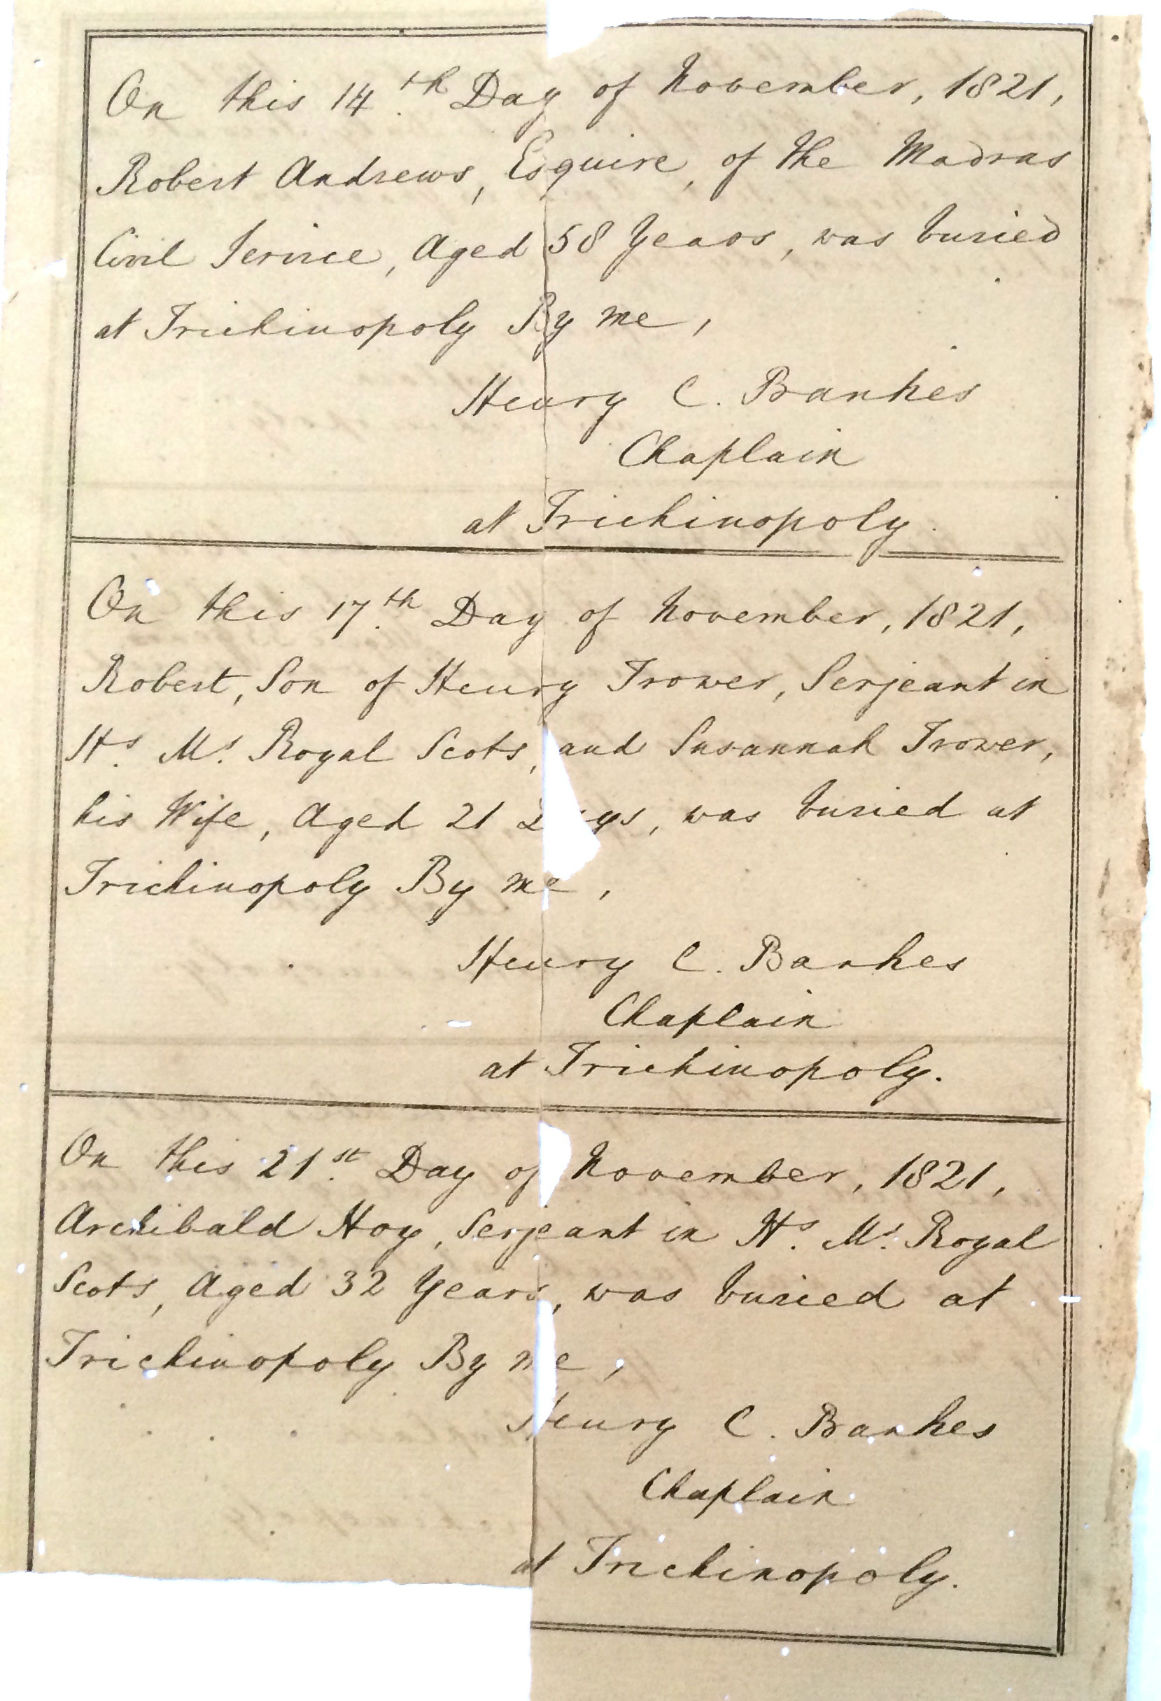 On this 14.th Day of November, 1821,
Robert Andrews, Esquire, of the Madras
Civil Service, Aged 58 Years, was buried
at Trichinopoly By me,
Henry C. Bankes
Chaplain
at Trichinopoly.
On this 17.th Day of November, 1821,
Robert, Son of Henry Trower, Serjeant in
H.s M.s Royal Scots, and Susannah Trower,
his Wife, Aged 21 Days, was buried at
Trichinopoly By me,
Henry C. Bankes
Chaplain
at Trichinopoly.
On this 21.st Day of November, 1821,
Archibald Hoy, Serjeant in H.s M.s Royal
Scots, Aged 32 Years, was buried at
Trichinopoly By me,
Henry C. Bankes
Chaplain
at Trichinopoly.